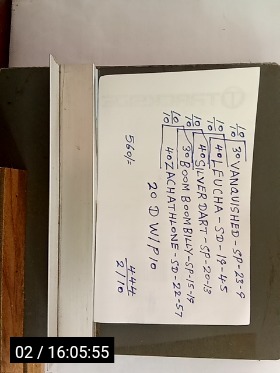 10/10 30 VANQUISHED-SP-23-9
10/10 40 LEUCHA-SD-19-4-5
10/10 40 SILVERDART-SP-20-13
10/10 30 BOOM BOOM BILLY-SP-15-17
10/10 40 ZACHATHLONE-SD-22-57
20 D W/P/10
560/-
444
2/10
02 / 16:05:55